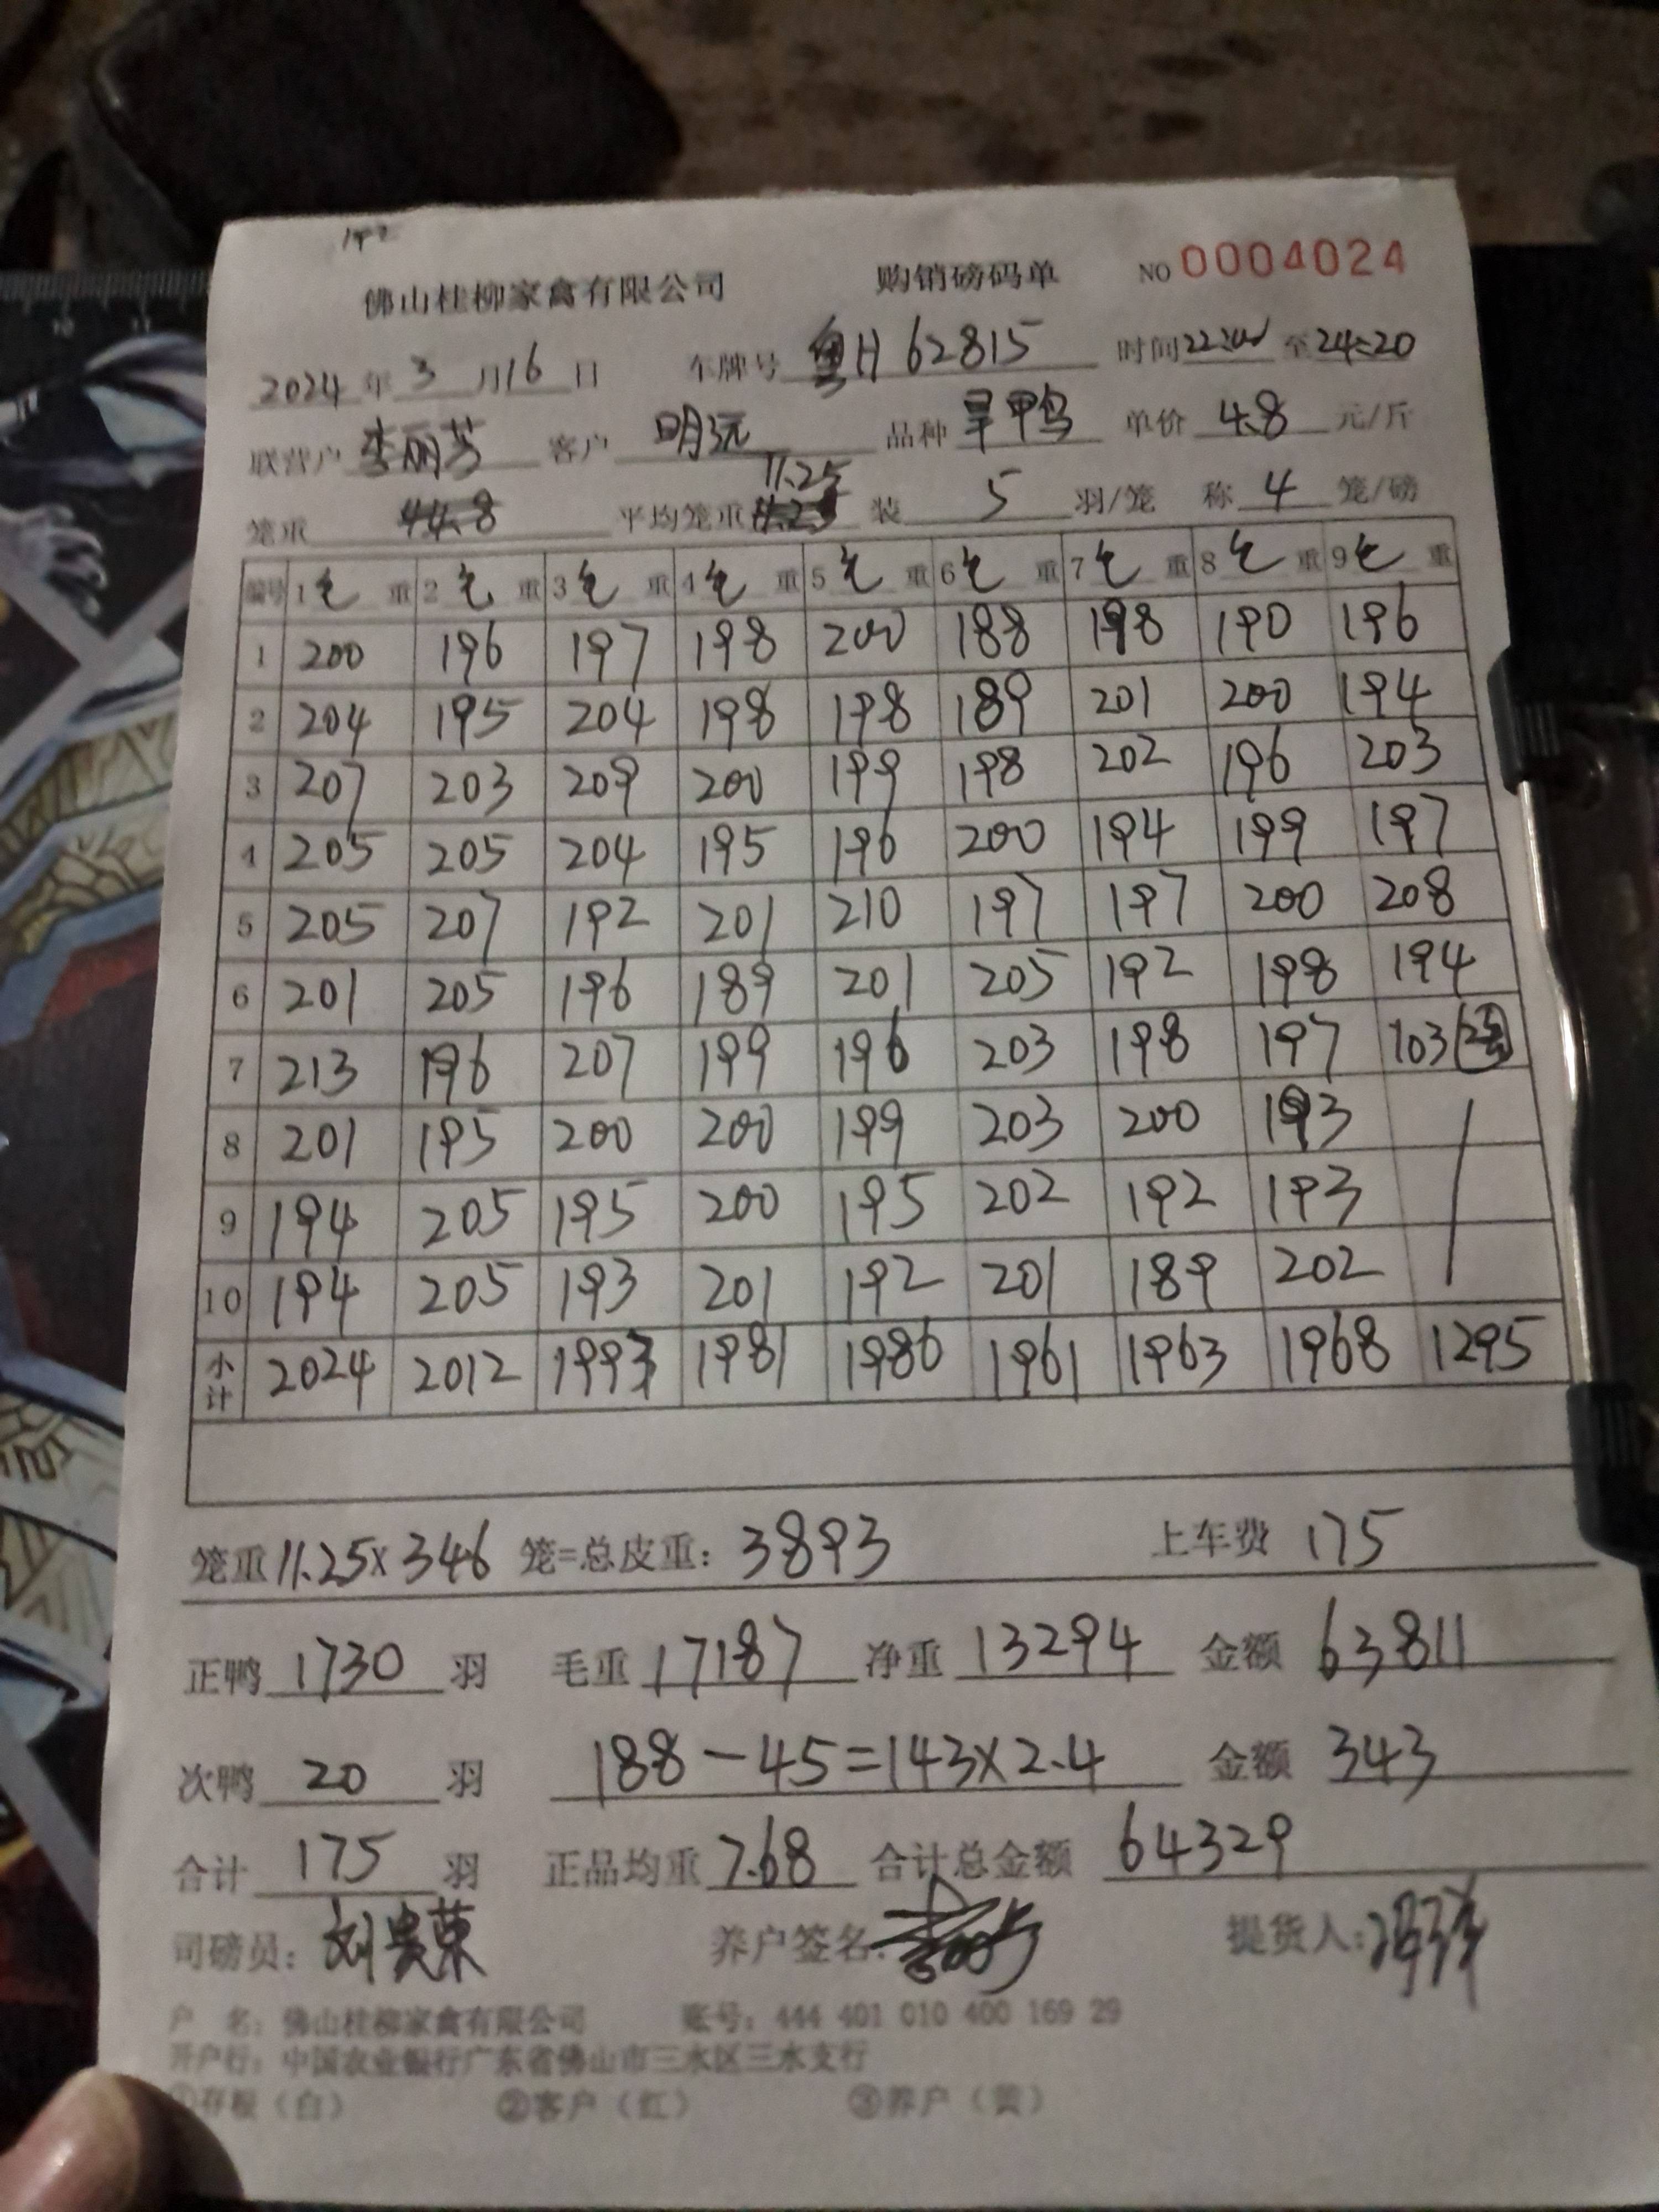 佛山桂柳家禽有限公司 购销磅码单 NO 0004024
2024 年 3 月 16 日 车牌号 粤H 62815 时间 至 24:20
联营户 李丽芳 客户 明远 品种 旱鸭 单价 4.8 元/斤
11.25
笼重 44.8 平均笼重 装 5 羽/笼 称 4 笼/磅
编号 1 毛 重 2 毛 重 3 毛 重 4 毛 重 5 毛 重 6 毛 重 7 毛 重 8 毛 重 9 毛 重
1 200 196 197 198 200 188 198 190 196
2 204 195 204 198 198 189 201 200 194
3 207 203 209 200 199 198 202 196 203
4 205 205 204 195 196 200 194 199 197
5 205 207 192 201 210 197 197 200 208
6 201 205 196 189 201 205 192 198 194
7 213 196 207 199 196 203 198 197 103
8 201 195 200 200 199 203 200 193
9 194 205 195 200 195 202 192 193
10 194 205 193 201 192 201 189 202
小计 2024 2012 1997 1981 1986 1961 1963 1968 1295
笼重 11.25×346 笼=总皮重: 3893 上车费 175
正鸭 1730 羽 毛重 17187 净重 13294 金额 63811
次鸭 20 羽 188-45=143×2.4 金额 343
合计 175 羽 正品均重 7.68 合计总金额 64329
司磅员: 刘贵荣 养户签名: 提货人:
户 名: 佛山桂柳家禽有限公司 账号: 444 401 010 400 169 29
开户行: 中国农业银行广东省佛山市三水区三水支行
①存根（白） ②客户（红） ③养户（黄）